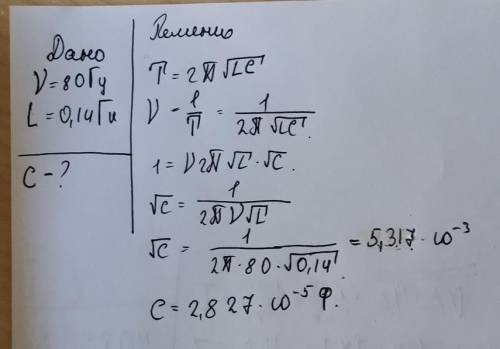 Дано
ν = 80 Гц
L = 0,14 Гн
C - ?
Решение
T = 2π √LC
ν - 1/T = 1/(2π √LC).
1 = ν 2π √L · √C.
√C = 1/(2π ν √L)
√C = 1/(2π · 80 · √0,14) = 5,317 · 10⁻³
C = 2,827 · 10⁻⁵ Ф.